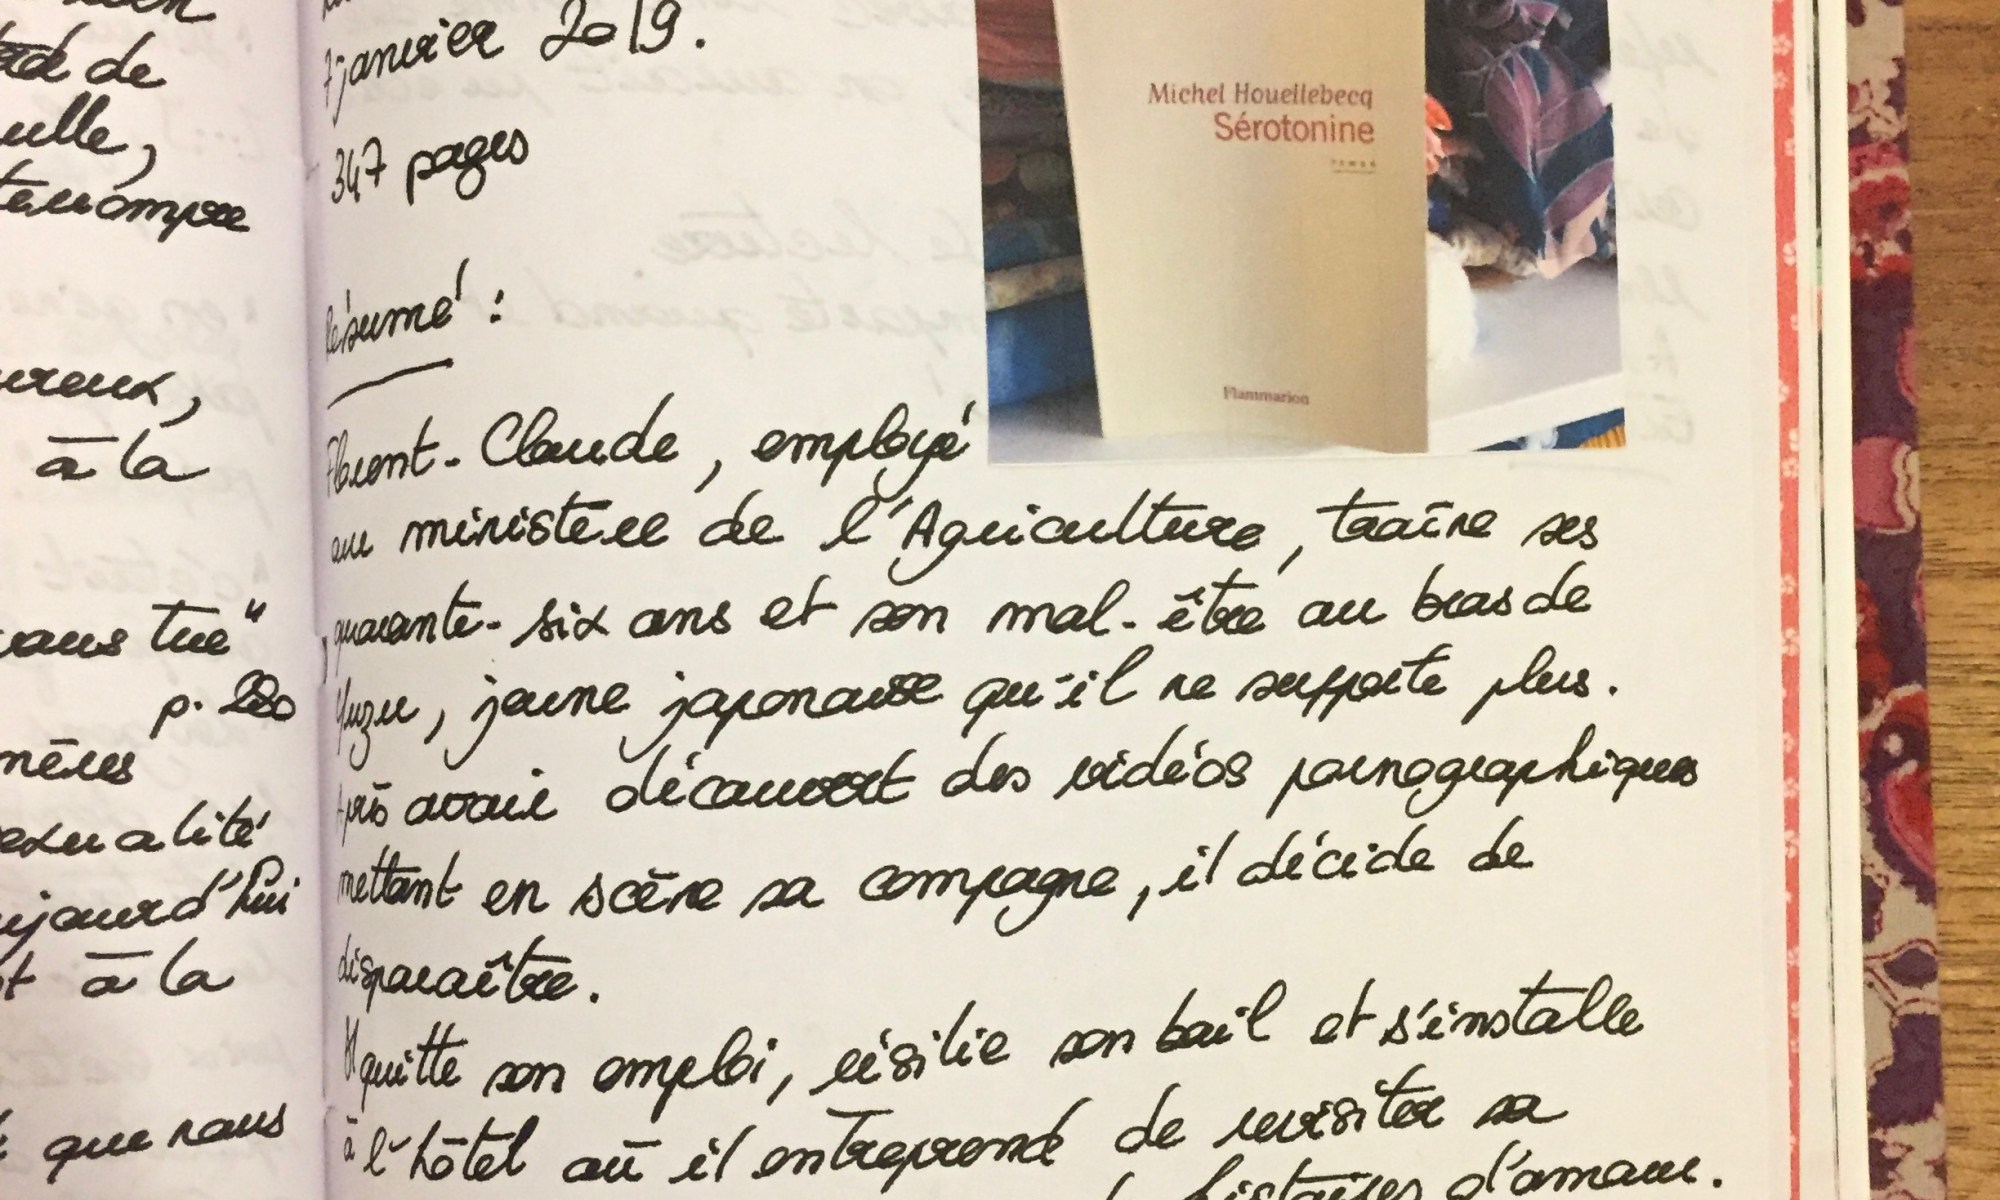 de
ulle,
ureux,
à la
p. 220
à la
que nous
7 janvier 2019.
347 pages
Michel Houellebecq
Sérotonine
roman
Flammarion
Résumé :
Florent-Claude, employé
au ministère de l'Agriculture, traîne ses
quarante-six ans et son mal-être au bras de
Yuzu, jeune japonaise qu'il ne supporte plus.
Après avoir découvert des vidéos pornographiques
mettant en scène sa compagne, il décide de
disparaître.
Il quitte son emploi, résilie son bail et s'installe
à l'hôtel où il entreprend de revisiter sa
histoires d'amour.